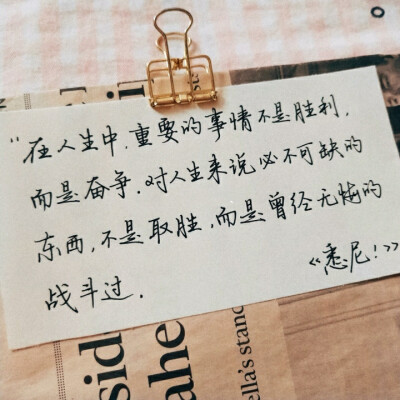 "在人生中,重要的事情不是胜利,
而是奋争.对人生来说必不可缺的
东西,不是取胜,而是曾经无悔的
战斗过.
《悉尼!》
sid
ahe
ella's stand